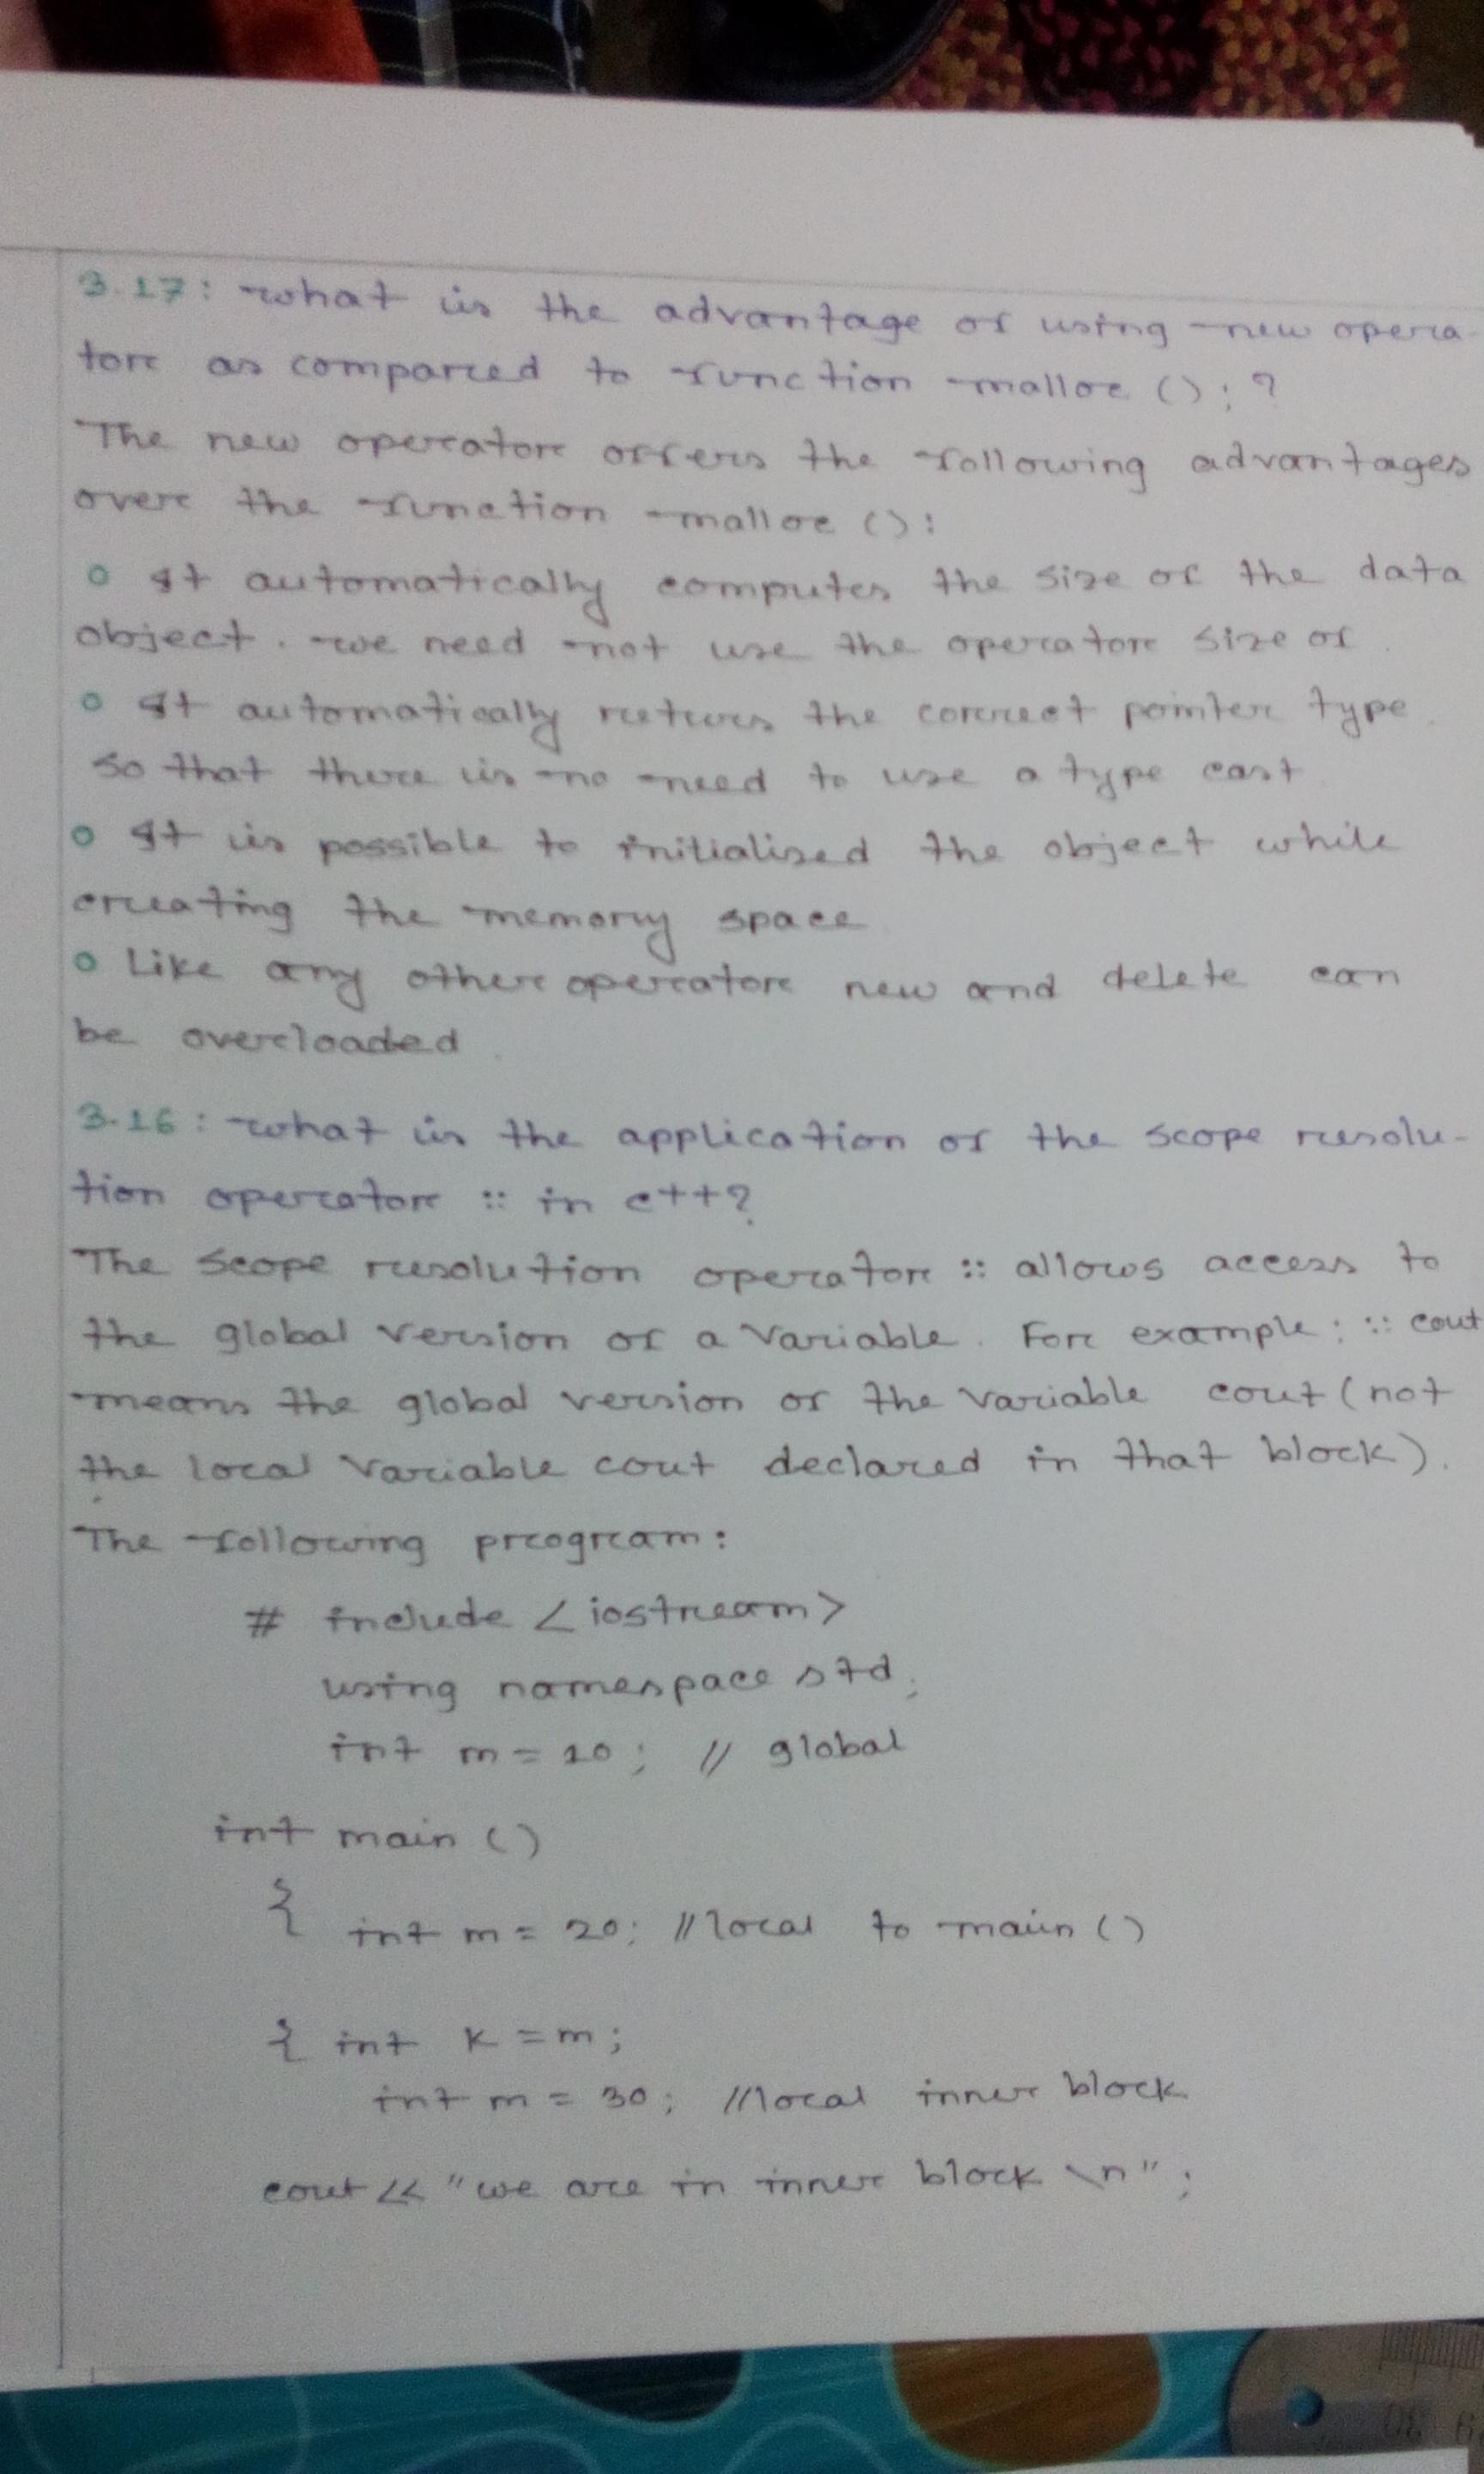 3.17: what is the advantage of using new opera-
tor as compared to function malloc (); ?
The new operator offers the following advantages
over the function malloc ():
o It automatically computes the size of the data
object. we need not use the operator size of
o It automatically returs the correct pointer type.
so that there is no need to use a type cast.
o It is possible to initialised the object while
creating the memory space
o Like any other operator new and delete can
be overloaded.
3.16: what is the application of the scope resolu-
tion operator :: in c++?
The scope resolution operator :: allows access to
the global version of a variable. For example: :: cout
means the global version of the variable cout (not
the local variable cout declared in that block).
The following program:
# include <iostream>
using namespace std;
int m = 10; // global
int main ()
{
int m = 20; // local to main ()
{ int k = m;
int m = 30; // local inner block
cout << "we are in inner block \n";